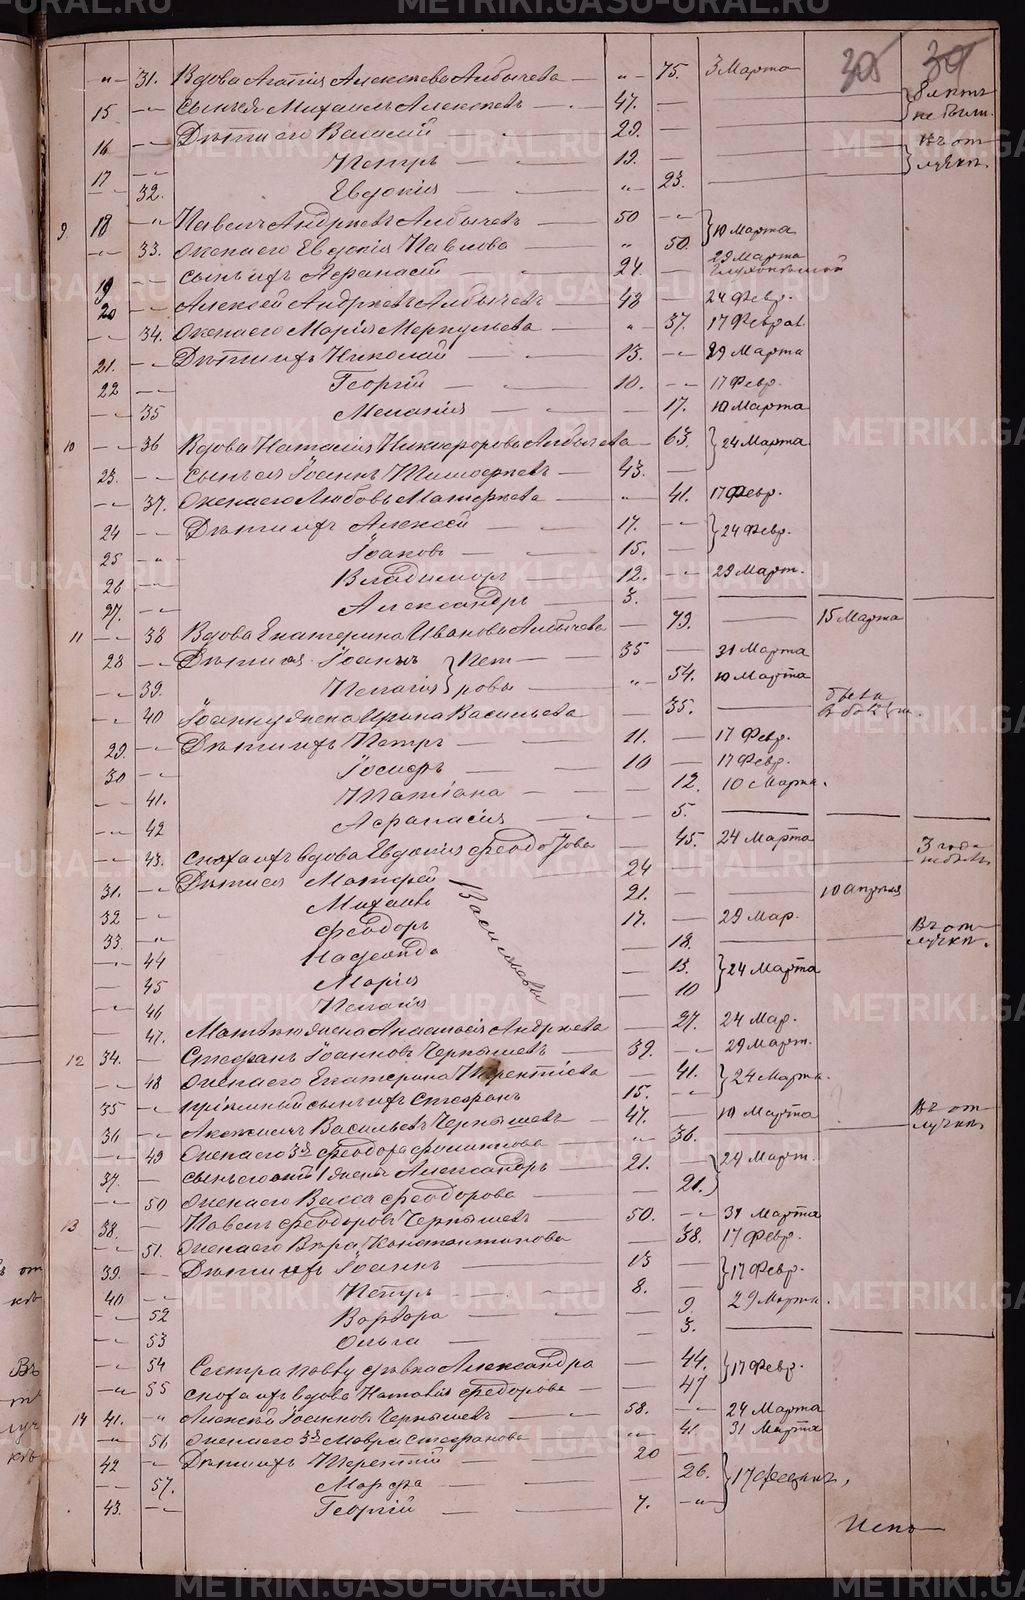 305 30
" 31. Вдова Агапія Алексѣева Албычева " 75. 3 Марта
15 " Сынъ ея Михаилъ Алексѣевъ 47. 8 лѣтъ не были.
16 " Дѣти его Василій 29.
17 " Петръ 19. Въ отлучкѣ.
" 32. Евдокія " 23.
9 18 " Павелъ Андреевъ Албычевъ 50 " 10 Марта
" 33. Жена его Евдокія Павлова " 50.
19 " Сынъ ихъ Афанасій 24. 29 Марта Глухонѣмой
20 " Алексѣй Андреевъ Албычевъ 48 24 Февр.
" 34. Жена его Марія Меркульева " 37. 17 Феврал.
21. " Дѣти ихъ Николай 13. " 29 Марта
22 " Георгій 10. " 17 Февр.
" 35 Меланія 17. 10 Марта
10 " 36 Вдова Наталія Никифорова Албычева 63. 24 Марта
23. " Сынъ ея Іоаннъ Тимофеевъ 43.
" 37. Жена его Любовь Матфеева " 41. 17 Февр.
24 " Дѣти ихъ Алексѣй 17. " 24 Февр.
25 " Іаковъ 15.
26 " Владиміръ 12. " 29 Март.
27. " Александръ 3.
11 " 38 Вдова Екатерина Иванова Албычева 79. 15 Марта
28 " Дѣти ея Іоаннъ Пет- 35 31 Марта
" 39. Пелагія ровы " 54. 10 Марта
" 40 Іоанну жена Ирина Васильева 35.
29. " Дѣти ихъ Петръ 11. 17 Февр.
30 " Іосифъ 10 17 Февр.
" 41. Татіана 12. 10 Марта.
" 42 Афанасія 5.
" 43. Сноха ихъ вдова Евдокія Феодотова 45. 24 Марта 3 года не былъ
31. " Дѣти ея Матфей 24 10 апрѣля
32 " Михаилъ Васильевы 21.
33. " Феодоръ 17. 29 Мар. Въ отлучкѣ.
" 44 Надежда 18.
" 45 Марія 13. 24 Марта
" 46 Пелагія 10
47. Матвѣю жена Анастасія Андреева 27. 24 Мар.
12 34. Стефанъ Іоанновъ Чернышевъ 39. " 29 Март.
" 48 Жена его Екатерина Терентіева 41. 24 Марта.
35 " Пріемный сынъ ихъ Стефанъ 15. "
36 " Акакій Васильевъ Чернышевъ 47. 10 Марта Въ отлучкѣ.
" 49 Жена его Феодора Филиппова " 36.
37. Сынъ его отъ 1 жены Александръ 21. 24 Март.
" 50 Жена его Васса Феодорова 21.
13 38. Павелъ Феодоровъ Чернышевъ 50. " 31 Марта
" 51. Жена его Вѣра Константинова 38. 17 Февр.
39. Дѣти ихъ Іоаннъ 13 17 Февр.
40 " Петръ 8. 29 Марта.
" 52 Варвара 9.
" 53 Ольга 3.
" 54 Сестра Павлу дѣвка Александра 44. 17 Февр.
" 55 Сноха ихъ вдова Наталія Феодорова 47
14 41. " Алексѣй Іоанновъ Чернышевъ 58. " 24 Марта
" 56 Жена его Мавра Стефанова " 41. 31 Марта
42 " Дѣти ихъ Терентій 20
" 57. Марфа 26. 17 Февр.
43. " Георгій 7. "
Испо
METRIKI.GASO-URAL.RU